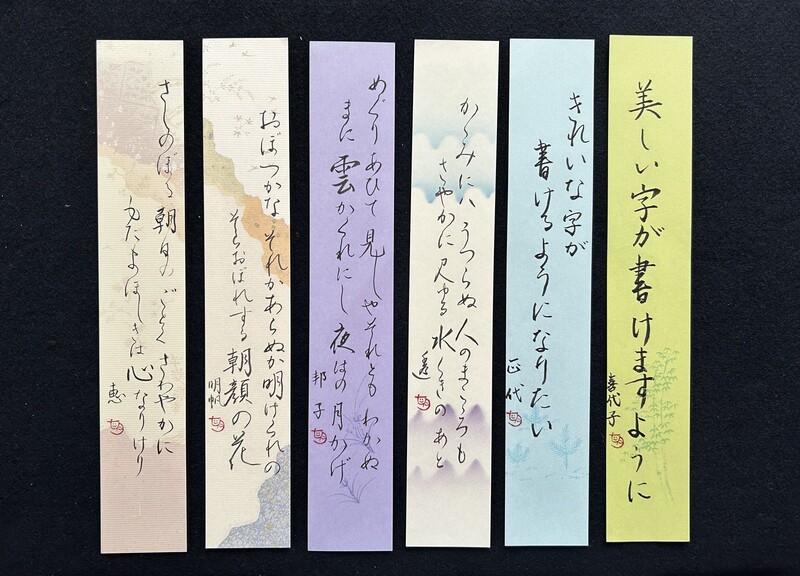 美しい字が書けますように
喜代子
きれいな字が
書けるようになりたい
正代
かゞみにハうつらぬ人のまごゝろも
さやかに見ゆる水くきのあと
遥
めぐりあひて見しやそれともわかぬ
まに雲がくれにし夜はの月かげ
邦子
おぼつかなそれかあらぬか明けぐれの
そらおぼれする朝顔の花
明帆
さしのぼる朝日のごとくさわやかに
もたまほしきは心なりけり
恵